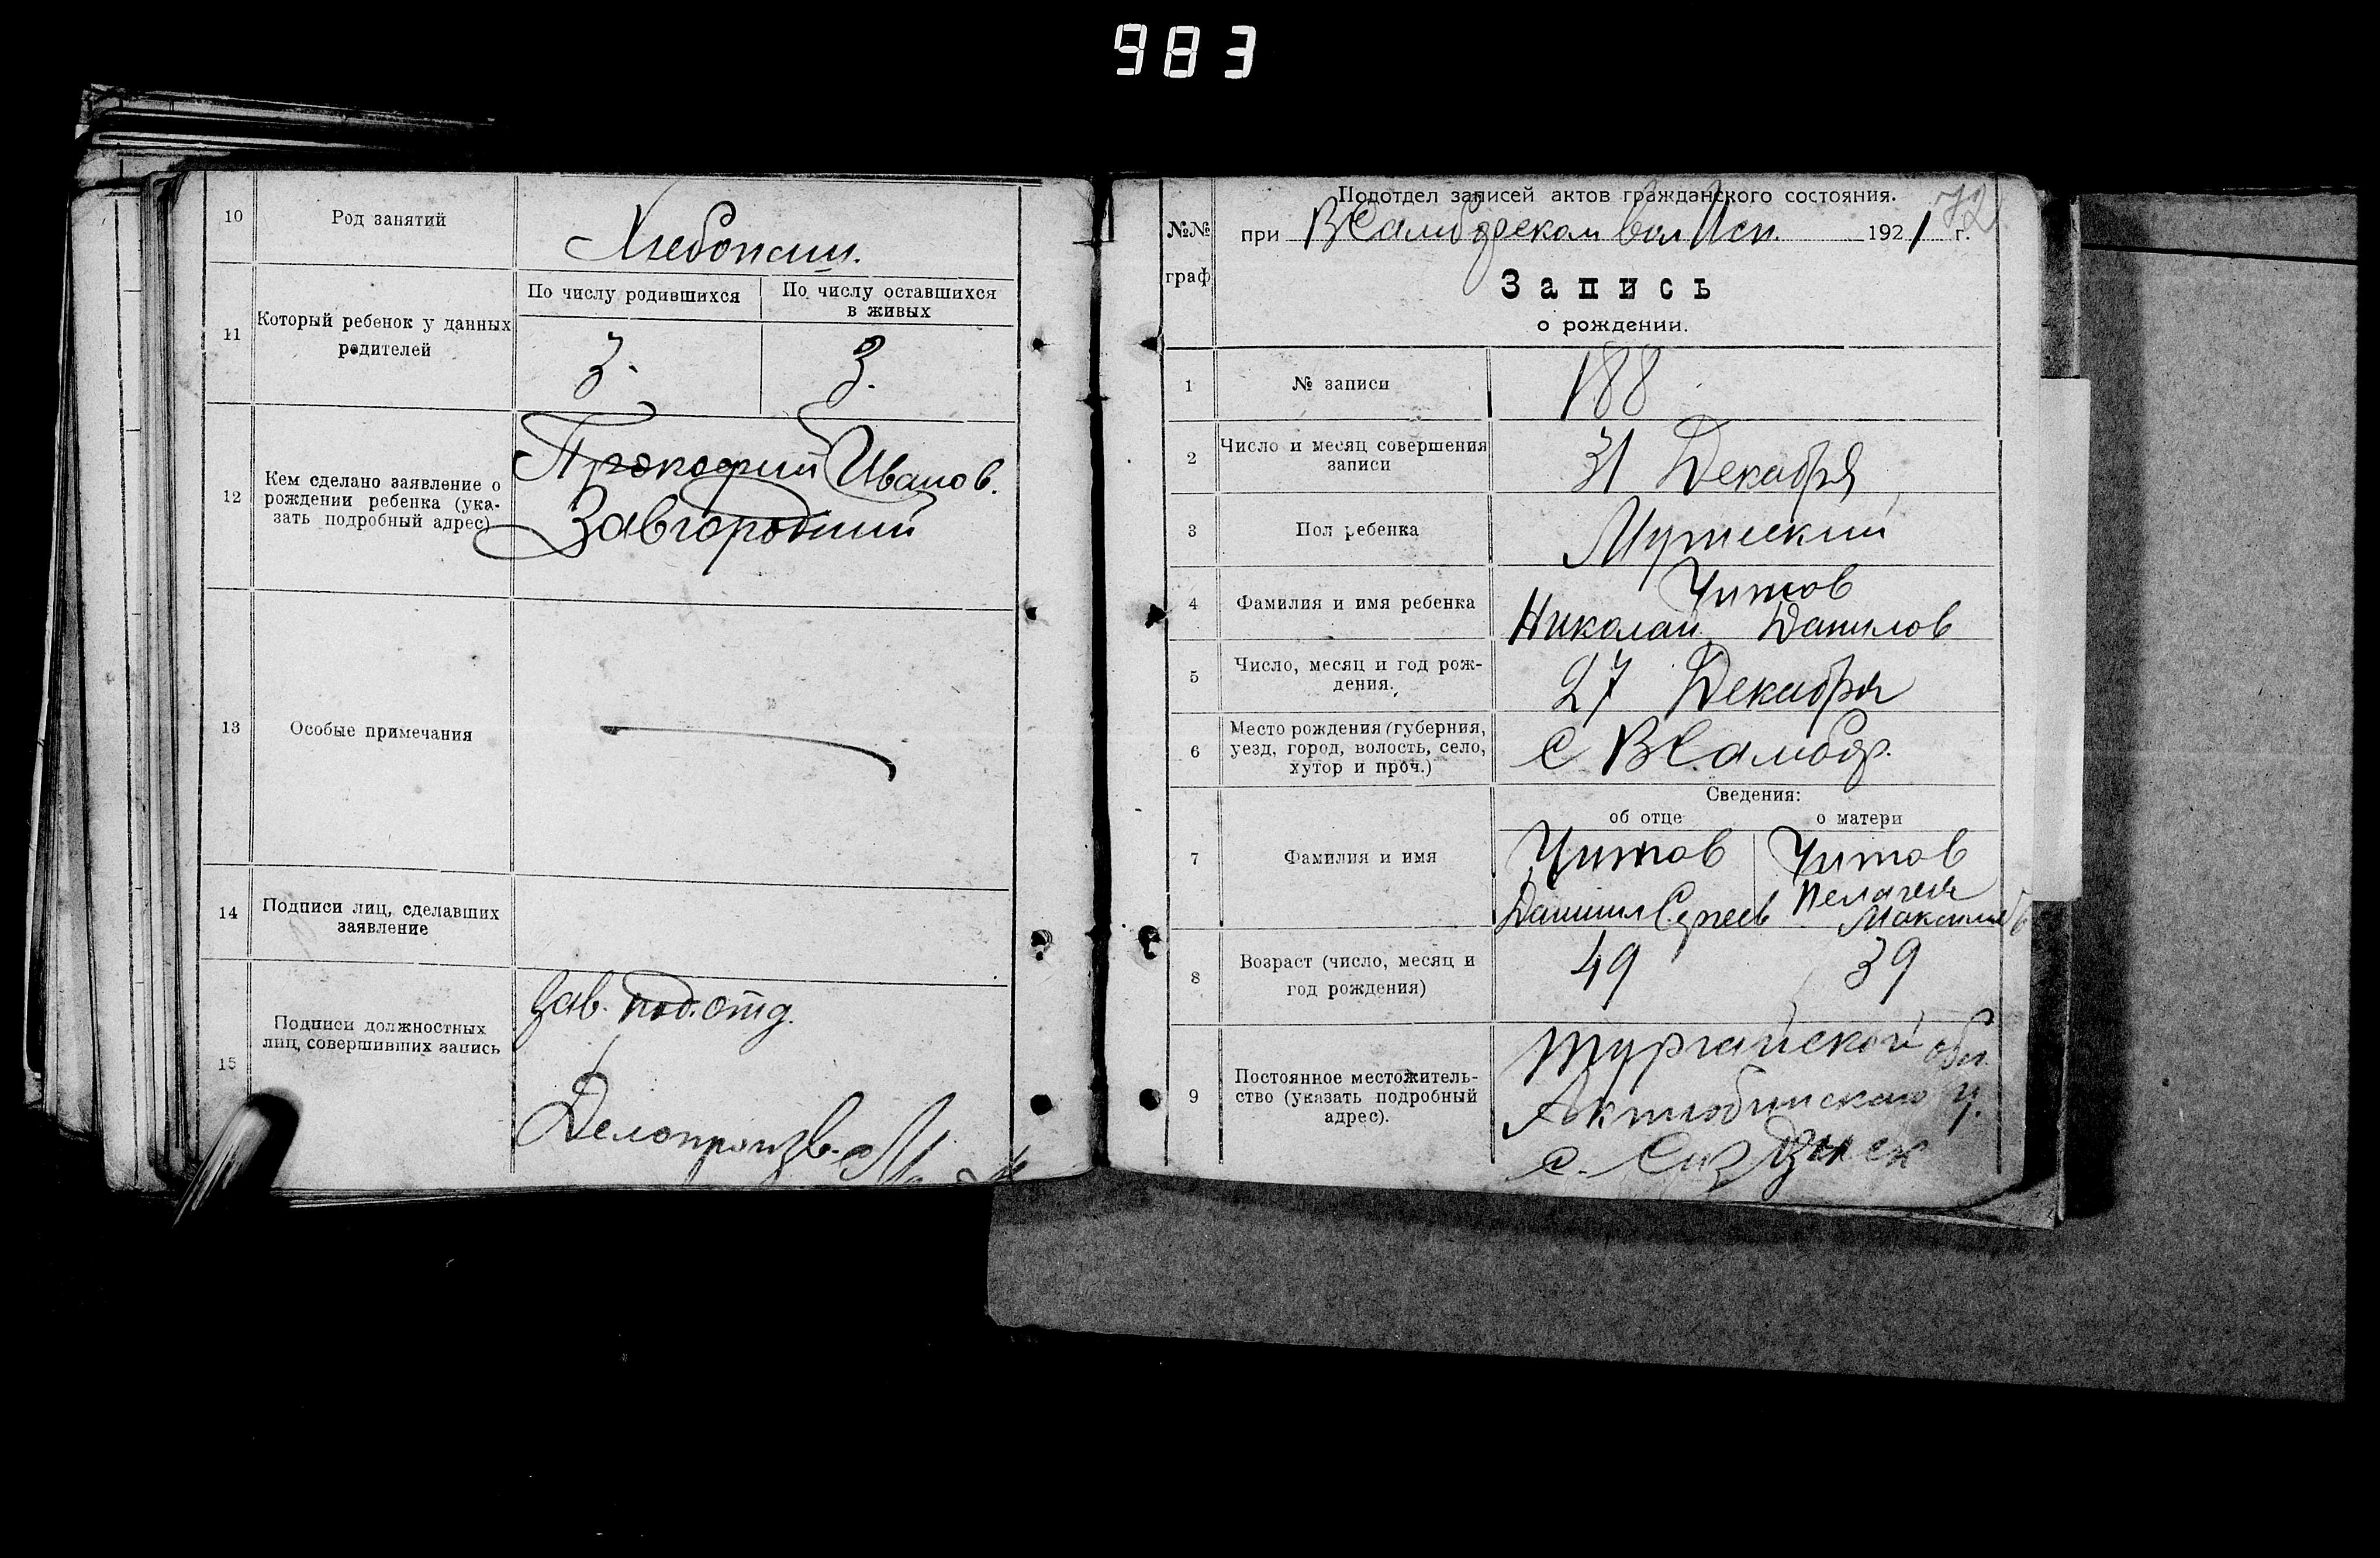 983
10
Род занятий
Хлебопаш.
11
Который ребенок у данных
родителей
По числу родившихся
По числу оставшихся
в живых
3.
3.
12
Кем сделано заявление о
рождении ребенка (ука-
зать подробный адрес)
Прокофий Иванов.
Завгородний
13
Особые примечания
14
Подписи лиц, сделавших
заявление
15
Подписи должностных
лиц, совершивших запись
Зав. под.отд.
Делопроизв.
72
Подотдел записей актов гражданского состояния.
№№
граф
при вол Исп. 1921 г.
Запись
о рождении.
1
№ записи
188
2
Число и месяц совершения
записи
31 Декабря
3
Пол ребенка
Мужеский
4
Фамилия и имя ребенка
Читов
Николай Данилов
5
Число, месяц и год рож-
дения.
27 Декабря
6
Место рождения (губерния,
уезд, город, волость, село,
хутор и проч.)
С.
Сведения:
об отце
о матери
7
Фамилия и имя
Читов
Даниил Сергеев
Читов
Пелагея
8
Возраст (число, месяц и
год рождения)
49
39
9
Постоянное местожитель-
ство (указать подробный
адрес).
Тургайской обл
Актюбинского у.
с.